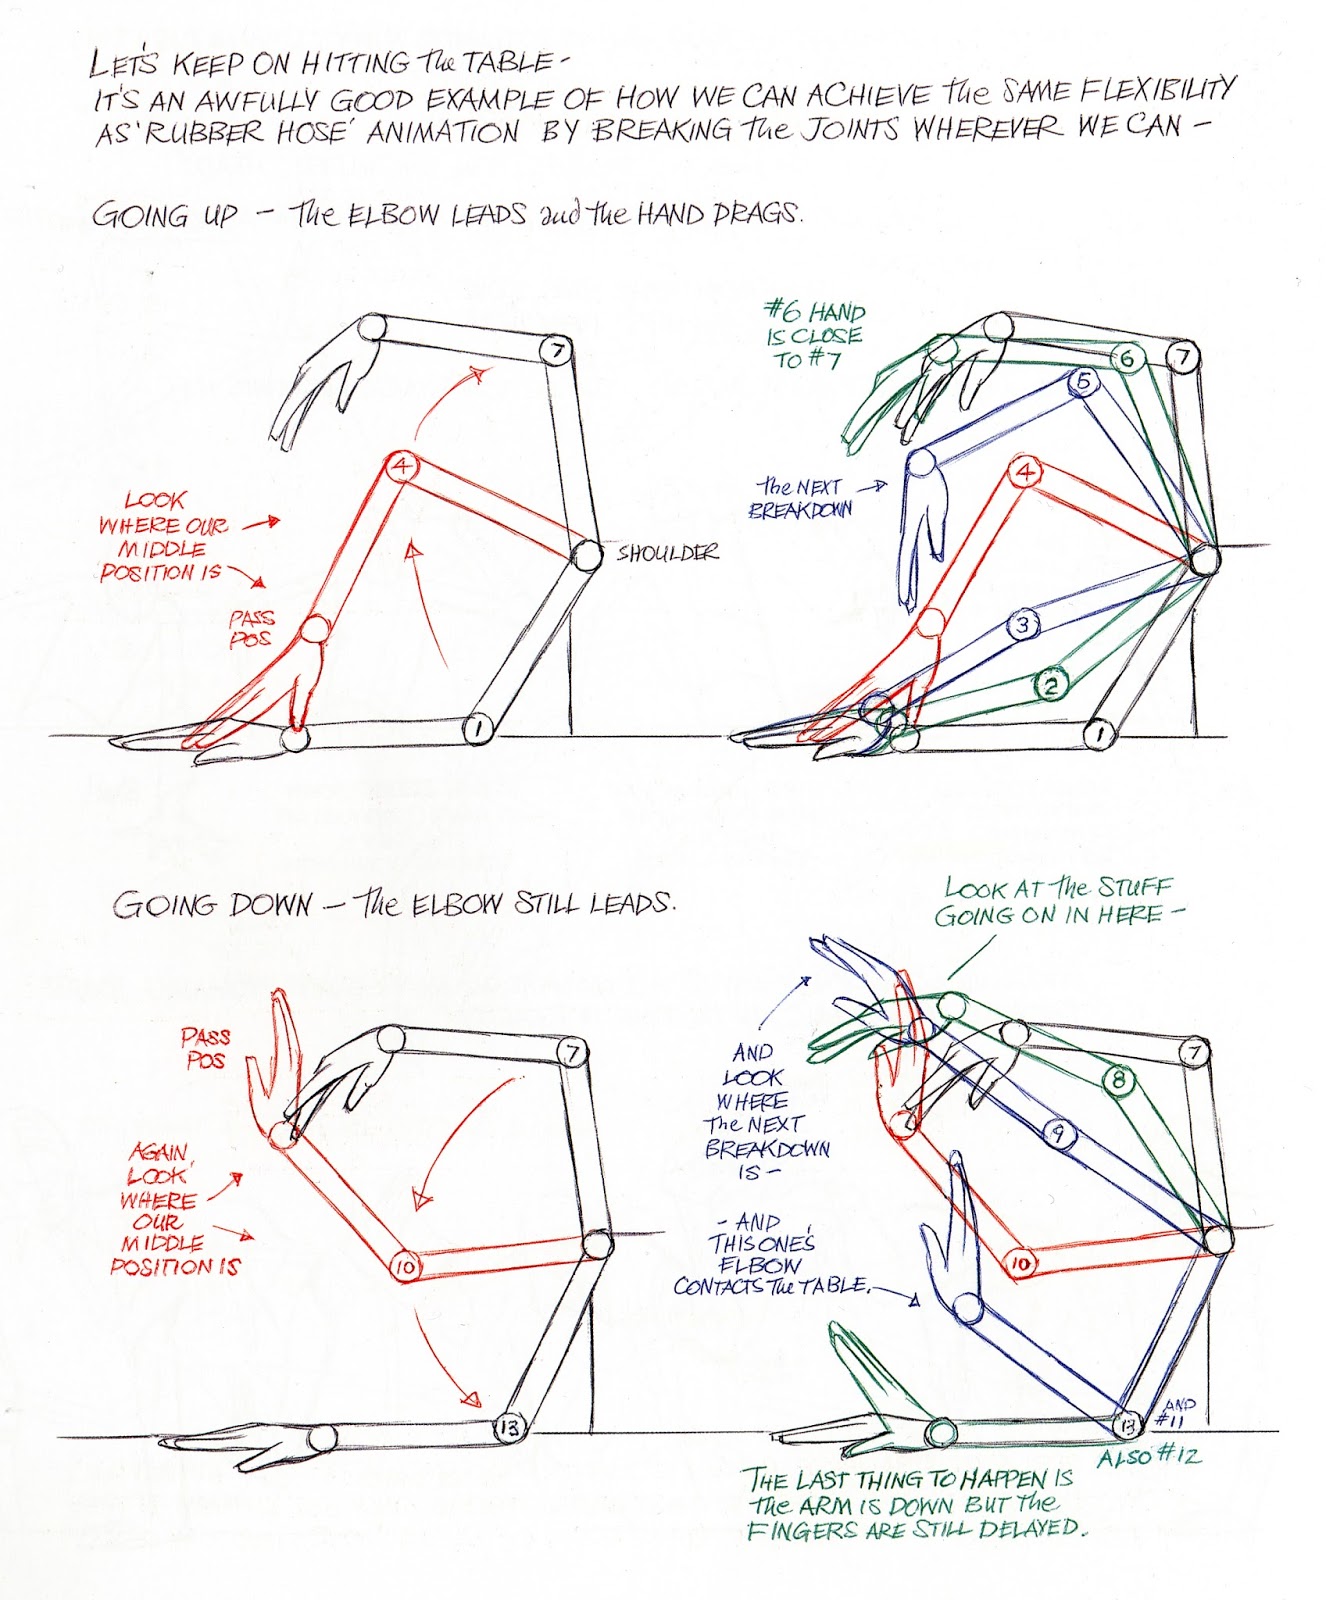 LET'S KEEP ON HITTING the TABLE –
IT'S AN AWFULLY GOOD EXAMPLE OF HOW WE CAN ACHIEVE the SAME FLEXIBILITY
AS 'RUBBER HOSE' ANIMATION BY BREAKING the JOINTS WHEREVER WE CAN –
GOING UP – the ELBOW LEADS and the HAND DRAGS.
7
4
LOOK
WHERE OUR
MIDDLE
POSITION IS
PASS
POS
SHOULDER
1
#6 HAND
IS CLOSE
TO #7
6
7
5
4
the NEXT
BREAKDOWN
3
2
1
GOING DOWN – the ELBOW STILL LEADS.
PASS
POS
7
AGAIN,
LOOK
WHERE
OUR
MIDDLE
POSITION IS
10
13
LOOK AT the STUFF
GOING ON IN HERE –
7
8
9
AND
LOOK
WHERE
the NEXT
BREAKDOWN
IS –
– AND
THIS ONE'S
ELBOW
CONTACTS the TABLE.
10
13
AND
#11
ALSO #12
THE LAST THING TO HAPPEN IS
the ARM IS DOWN BUT the
FINGERS ARE STILL DELAYED.